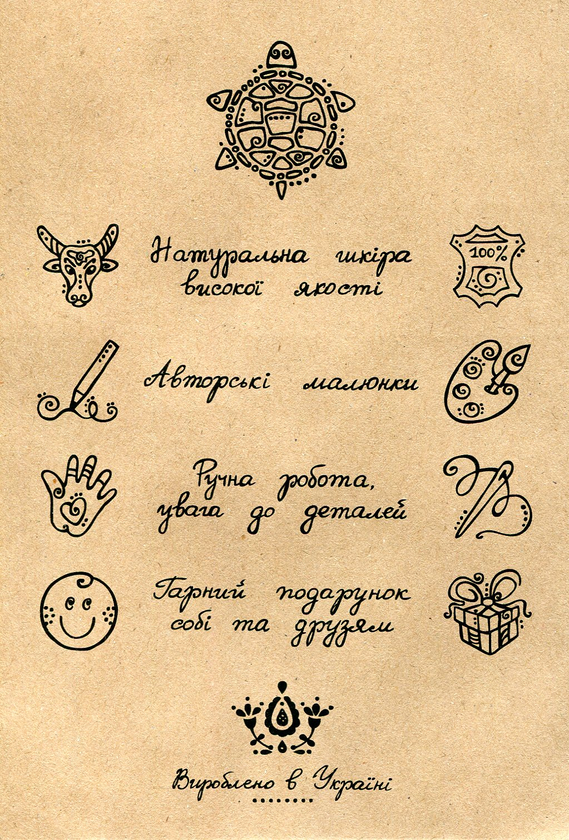 Натуральна шкіра
100%
високої якості
Авторські малюнки
Ручна робота,
увага до деталей
Гарний подарунок
собі та друзям
Вироблено в Україні